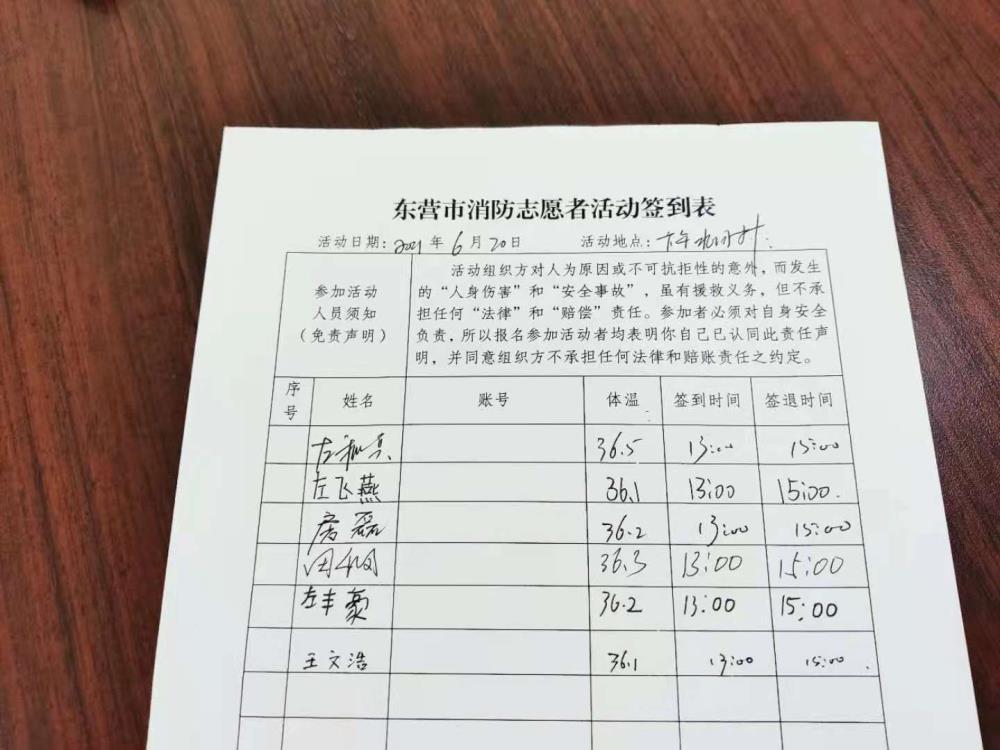 东营市消防志愿者活动签到表
活动日期: 2021 年 6 月 20 日 活动地点:
参加活动
人员须知
(免责声明)
活动组织方对人为原因或不可抗拒性的意外,而发生
的“人身伤害”和“安全事故”,虽有援救义务,但不承
担任何“法律”和“赔偿”责任。参加者必须对自身安全
负责,所以报名参加活动者均表明你自己已认同此责任声
明,并同意组织方不承担任何法律和赔账责任之约定。
序号 姓名 账号 体温 签到时间 签退时间
36.5 13:00 15:00
左飞燕 36.1 13:00 15:00.
房磊 36.2 13:00 15:00
36.3 13:00 15:00
左丰豪 36.2 13:00 15:00
王文浩 36.1 13:00 15:00.